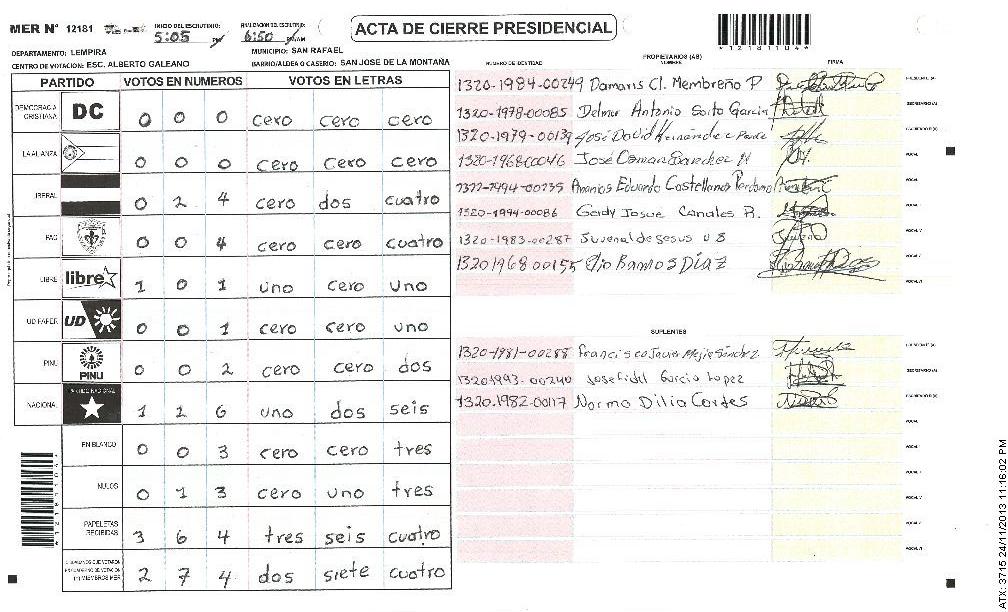 MER N° 12181
INICIO DEL ESCRUTINIO: 5:05 PM
FINALIZACION DEL ESCRUTINIO: 6:50 PM/AM
ACTA DE CIERRE PRESIDENCIAL
12181104
DEPARTAMENTO: LEMPIRA
MUNICIPIO: SAN RAFAEL
CENTRO DE VOTACION: ESC. ALBERTO GALEANO
BARRIO/ALDEA O CASERIO: SAN JOSE DE LA MONTAÑA
PARTIDO VOTOS EN NUMEROS VOTOS EN LETRAS
DEMOCRACIA CRISTIANA DC 0 0 0 cero cero cero
LA ALIANZA 0 0 0 cero cero cero
LIBERAL 0 2 4 cero dos cuatro
PAC 0 0 4 cero cero cuatro
LIBRE libre 1 0 1 uno cero uno
UD FAPER UD 0 0 1 cero cero uno
PINU PINU 0 0 2 cero cero dos
NACIONAL PARTIDO NACIONAL 1 2 6 uno dos seis
EN BLANCO 0 0 3 cero cero tres
NULOS 0 1 3 cero uno tres
PAPELETAS RECIBIDAS 3 6 4 tres seis cuatro
CIUDADANOS QUE VOTARON
2 7 4 dos siete cuatro
(+) MIEMBROS MER
NUMERO DE IDENTIDAD
PROPIETARIOS (AS)
NOMBRE
FIRMA
1320-1984-00249 Damaris Cl. Membreño P PRESIDENTE (A)
1320-1978-00085 Delmer Antonio Soto Garcia SECRETARIO (A)
1320-1979-00139 José David Hernández ESCRUTADOR (A)
1320-1968-00046 José Osman Sanchez M VOCAL I
Ananias Eduardo Castellanos Perdomo
1320-1994-00086 Gerdy Josue Canales R.
1320-1983-00287 Juvenal de Jesus
1320 1968 00155 Elio Ramos DÍAZ
SUPLENTES
1320-1981-00288 Francisco Javier Mejia Sánchez
1320 1993-00240 Jose Fidel Garcia Lopez
1320.1982-00117 Norma Dilia Cortes
ATX: 3715 24/11/2013 11:16:02 PM